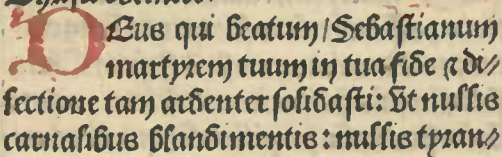 DEus qui beatum/Sebastianum
martyrem tuum in tua fide ⁊ di⸗
lectione tam ardenter solidasti: Vt nullis
carnalibus blandimentis: nullis tyran⸗